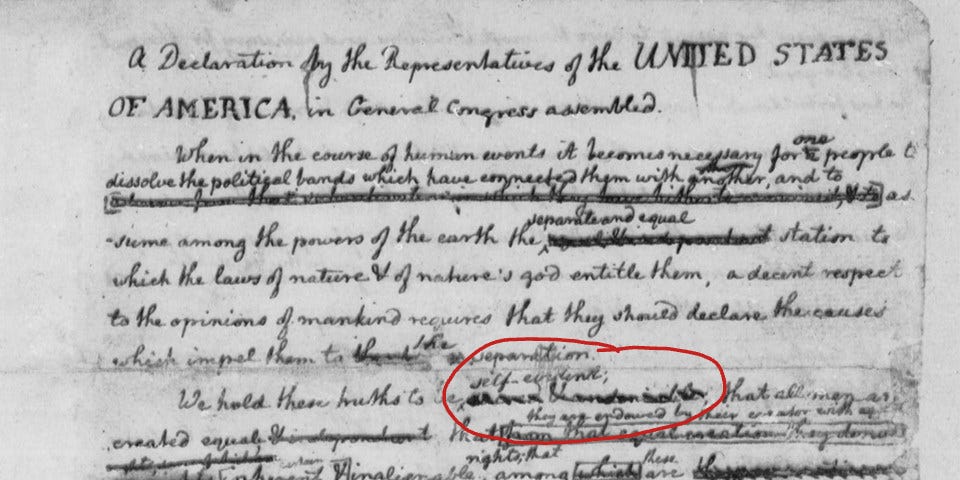 A Declaration by the Representatives of the UNITED STATES
OF AMERICA, in General Congress assembled.
When in the course of human events it becomes necessary for one people to
dissolve the political bands which have connected them with another, and to
as
separate and equal
-sume among the powers of the earth the station to
which the laws of nature & of nature's god entitle them, a decent respect
to the opinions of mankind requires that they should declare the causes
the
which impel them to separation.
self-evident;
We hold these truths to be that all men are
they are endowed by their creator with
created equal & independant that from that equal creation they derive
rights, that
inherent & inalienable, among which are
these